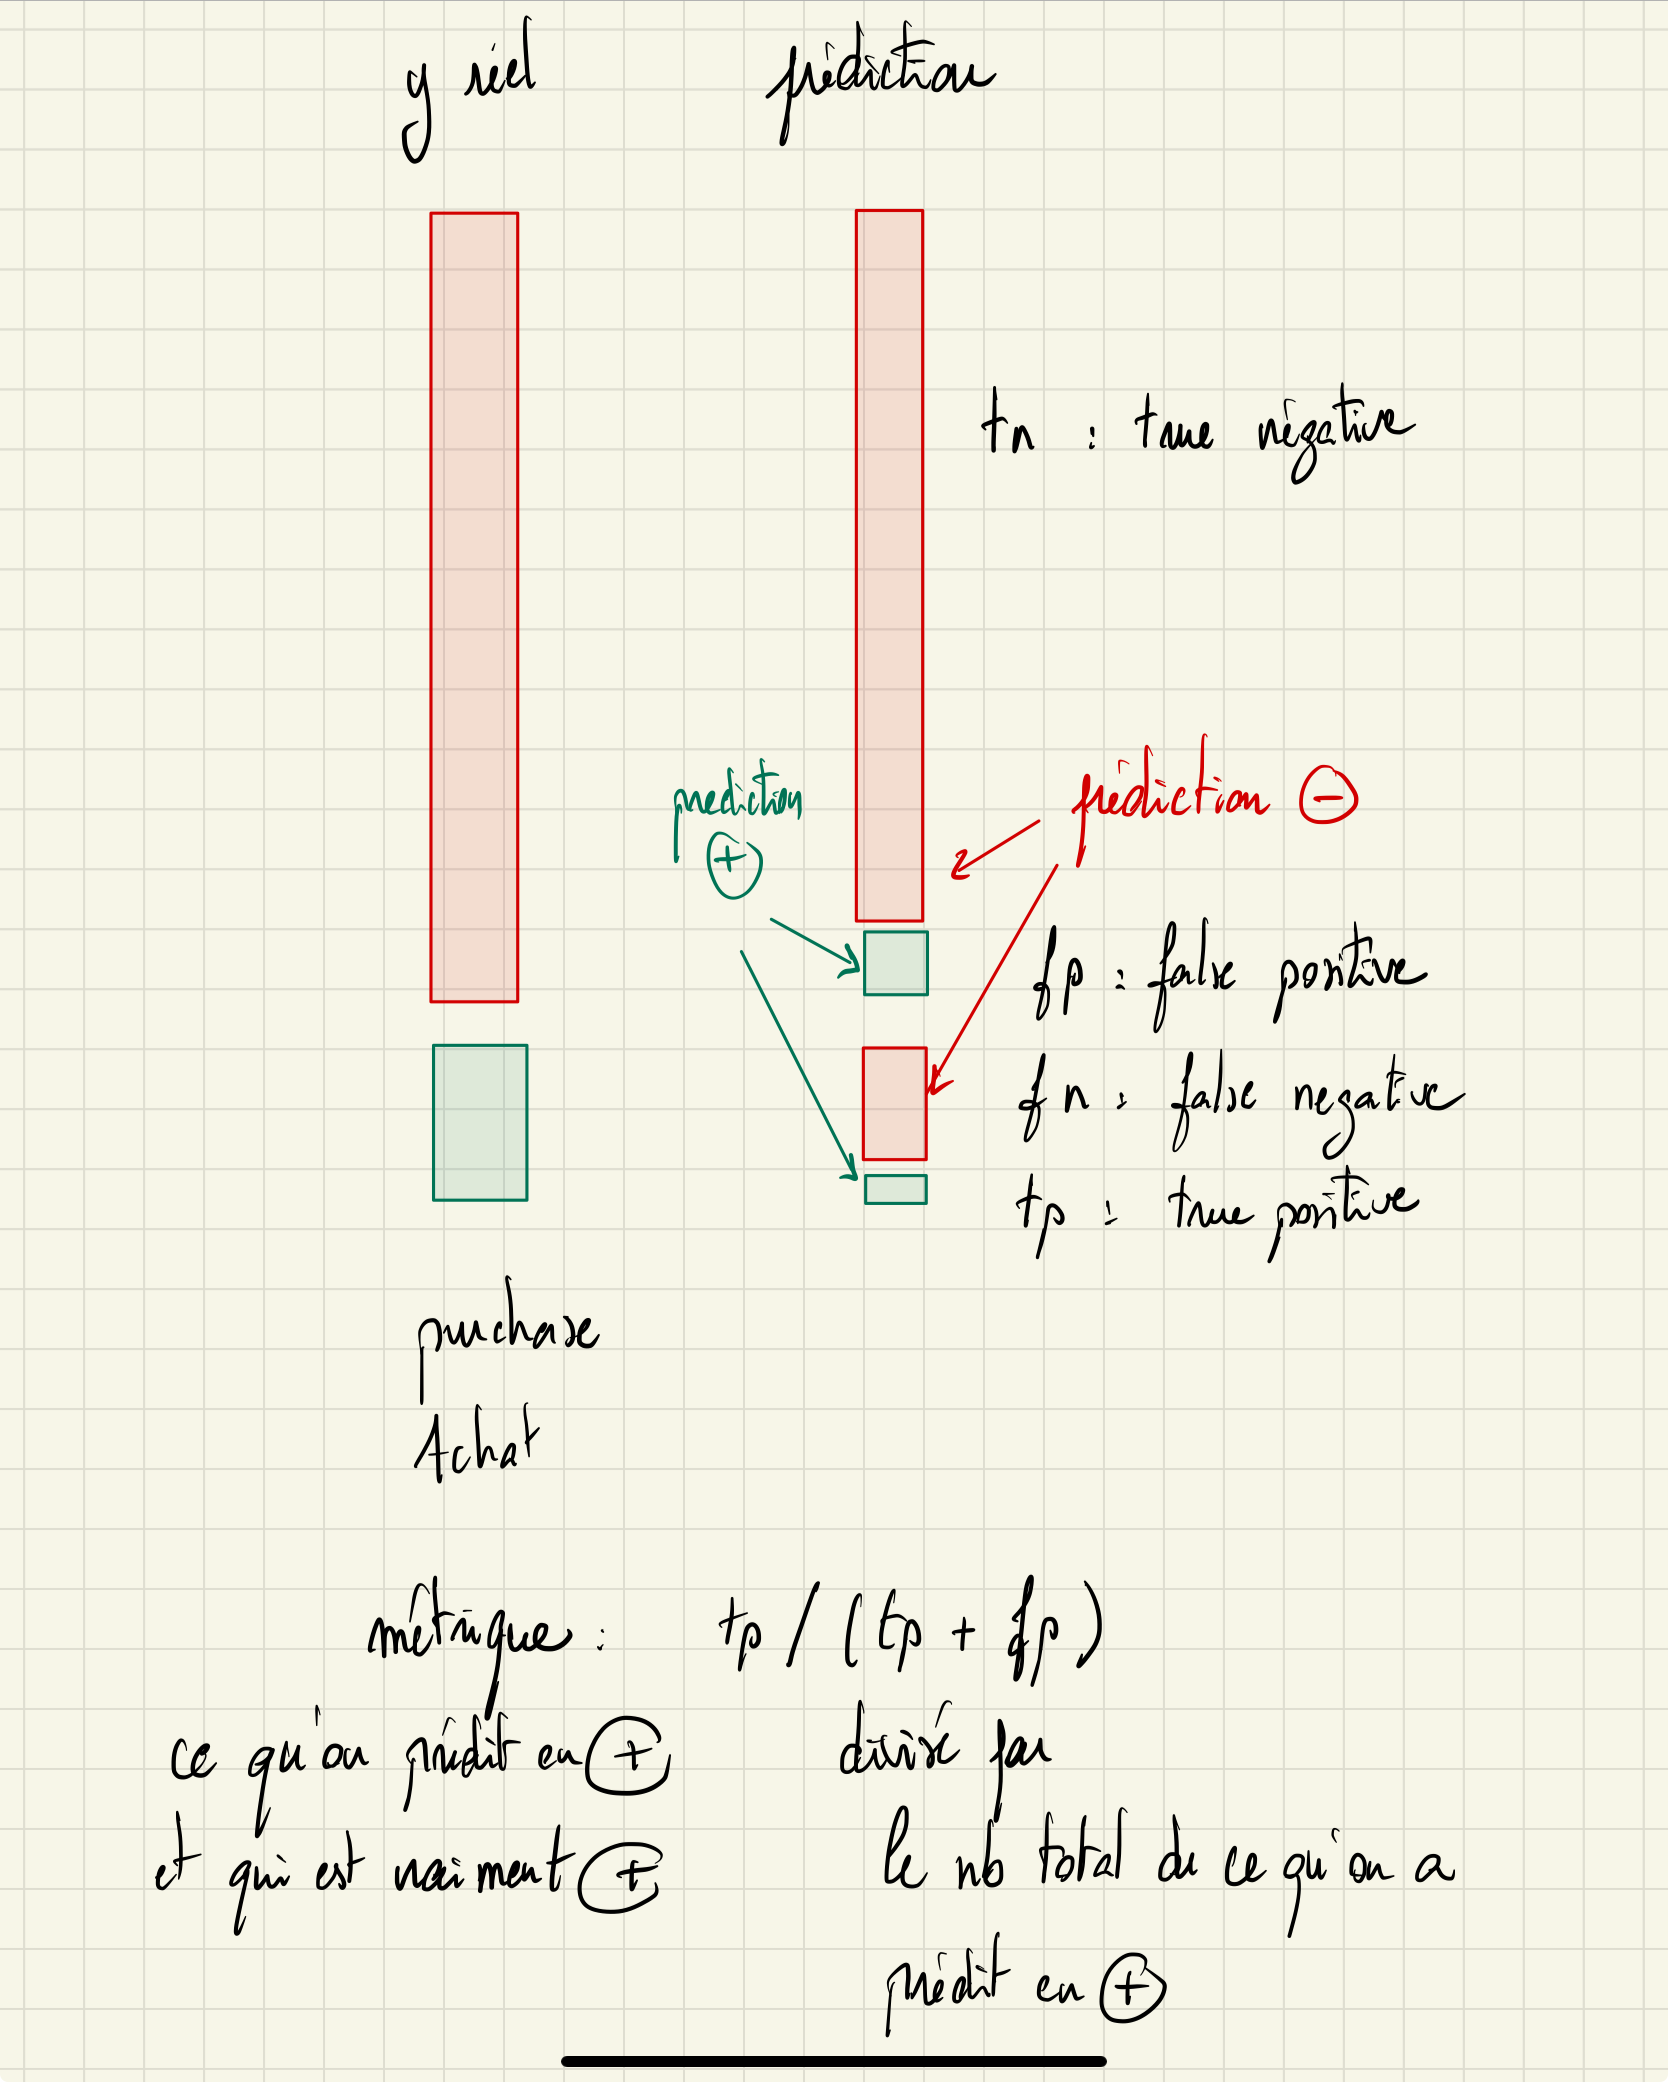 y réel prédiction
tn : true négative
prediction
+
prédiction -
fp : false positive
fn : false negative
tp : true positive
purchase
Achat
métrique : tp / (tp + fp)
ce qu'on prédit en + divisé par
et qui est vraiment + le nb total de ce qu'on a
prédit en +